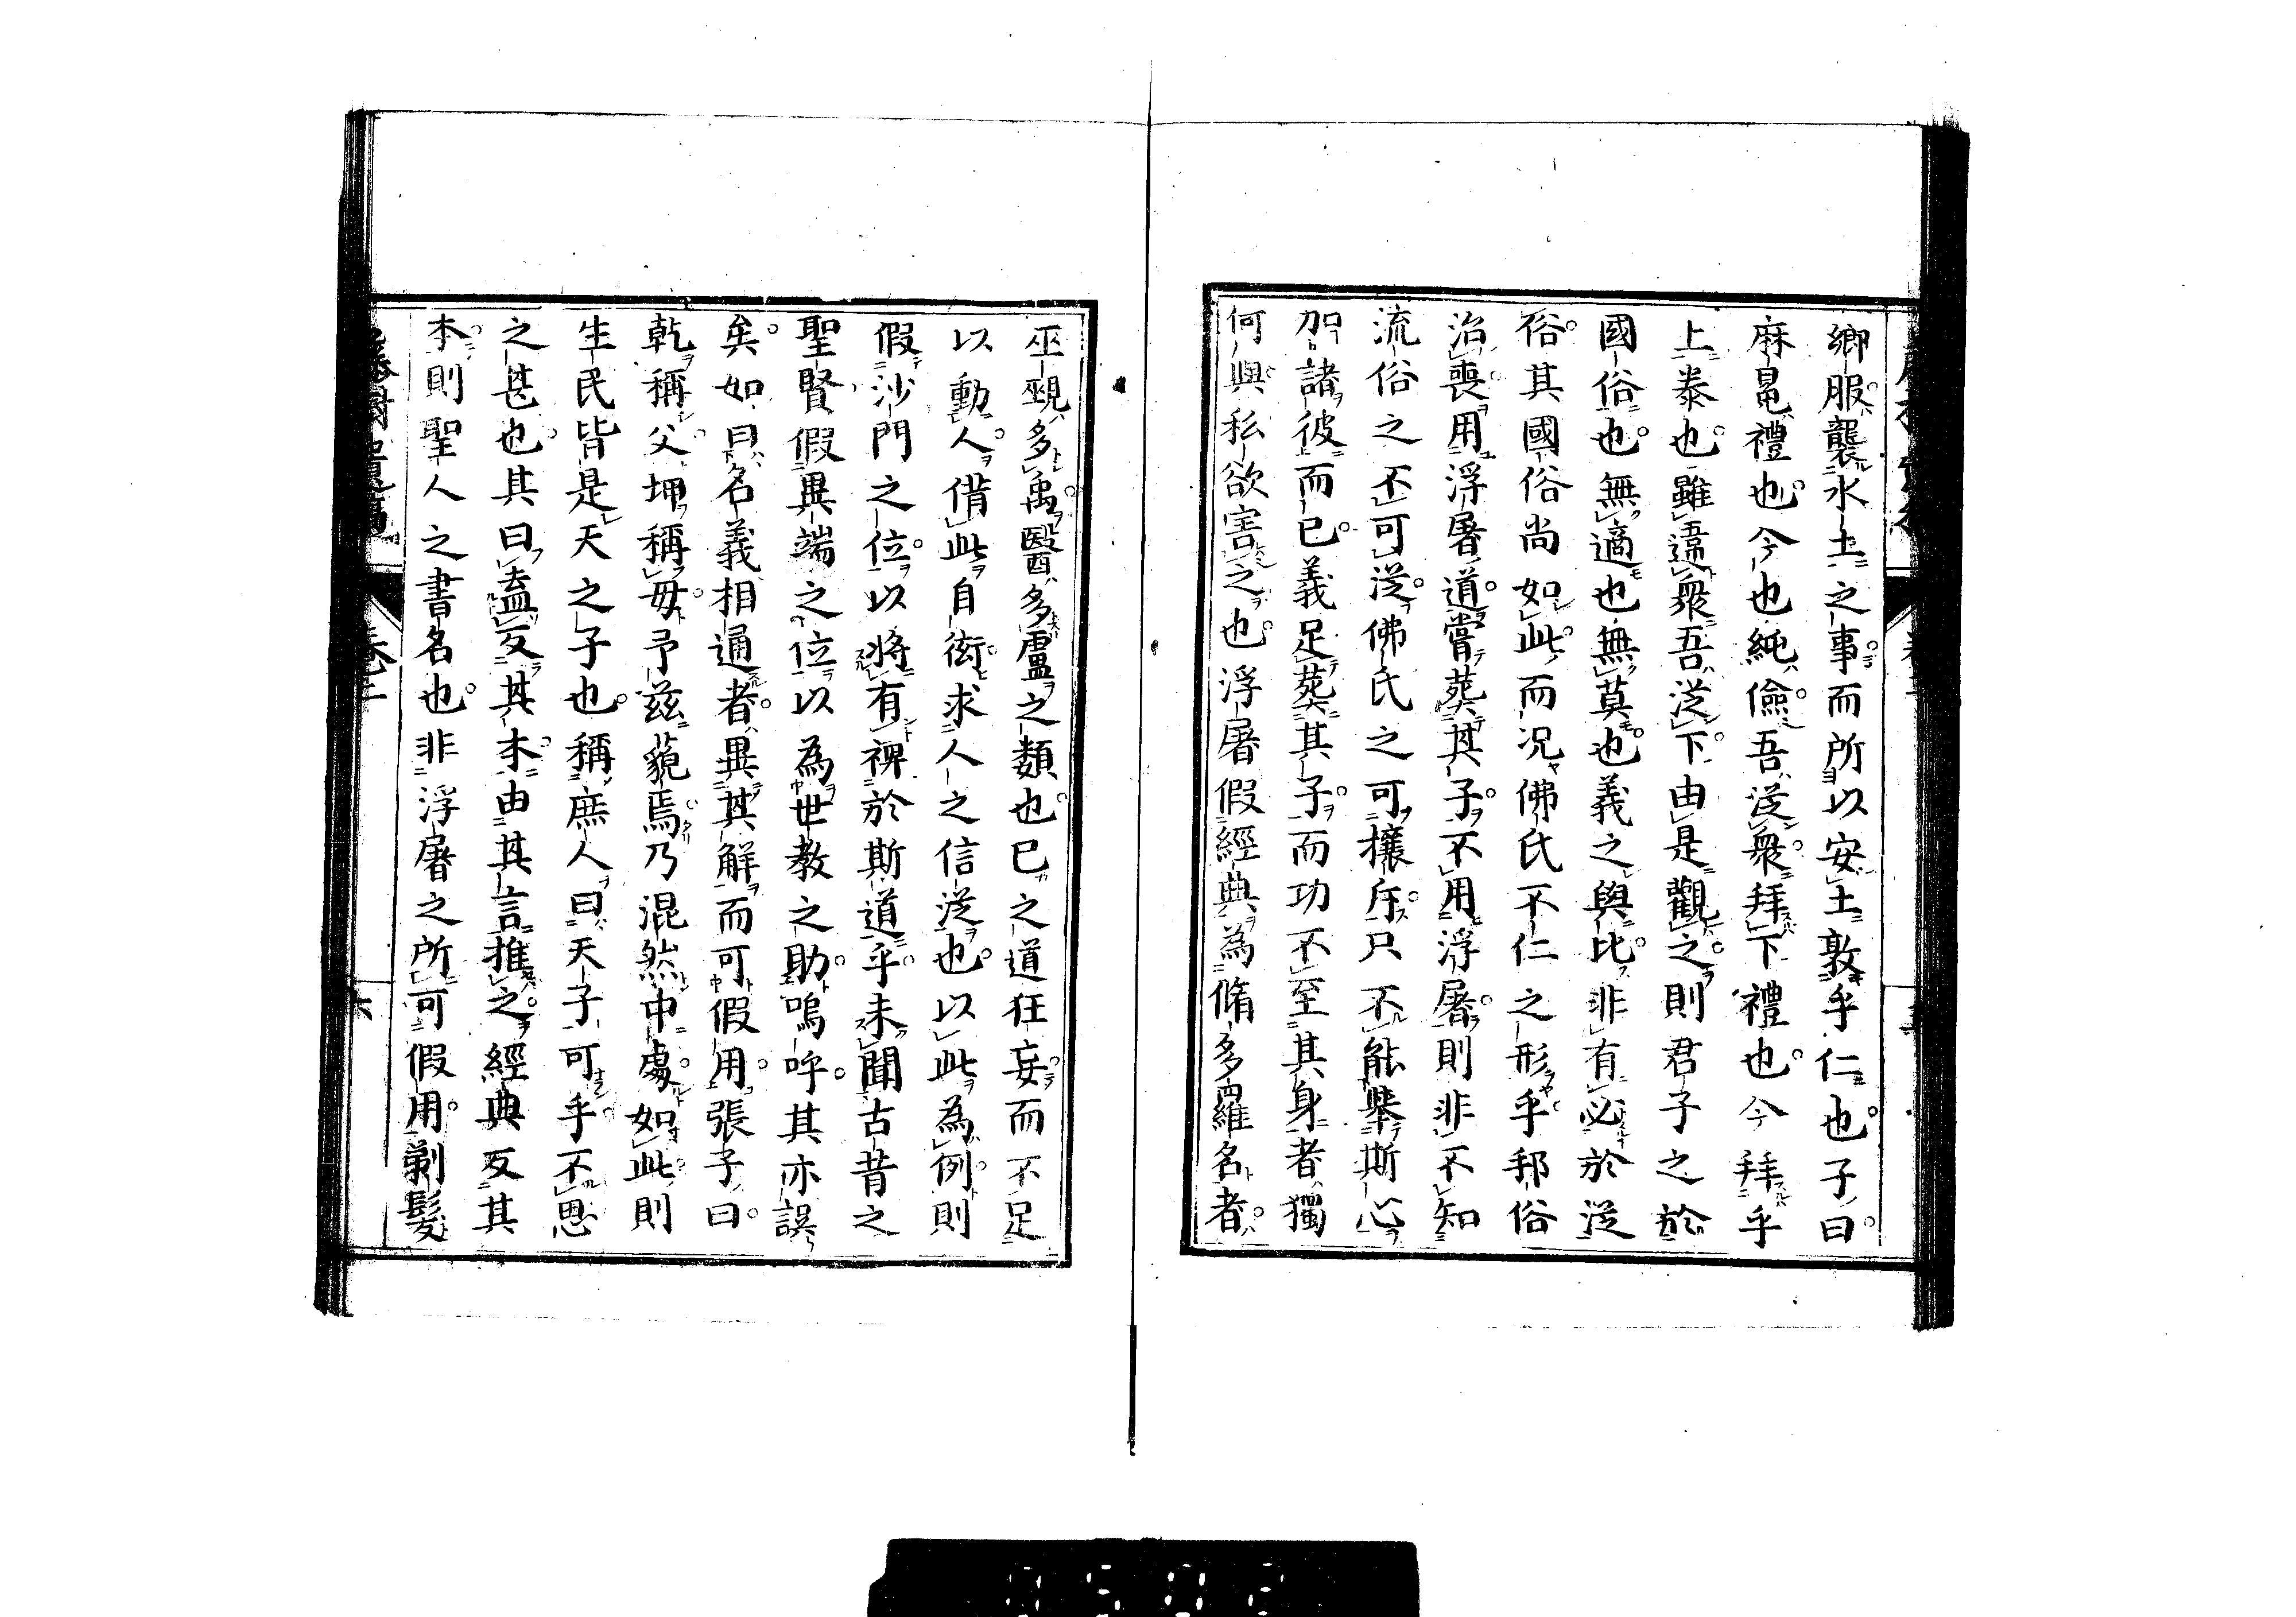 鄉服襲水土之事而所以安土敦乎仁也子曰
麻冕禮也今也純儉吾從衆拜下禮也今拜乎
上泰也雖違衆吾從下由是觀之則君子之於
國俗也無適也無莫也義之與比非有必於從
俗其國俗尚如此而況佛氏不仁之形乎邦俗
治喪用浮屠道嘗葬其子不用浮屠則非不知
流俗之不可從佛氏之可攘斥只不能舉斯心
加諸彼而已義足葬其子而功不至其身者獨
何與私欲害之也浮屠假經典為脩多羅名者
巫覡多禹醫多盧之類也已之道狂妄而不足
以動人借此自衒求人之信從也以此為例則
假沙門之位以將有裨於斯道乎未聞古昔之
聖賢假異端之位以為世教之助嗚呼其亦誤
矣如曰名義相通者異其解而可假用張子曰
乾稱父坤稱母予茲藐焉乃混然中處如此則
生民皆是天之子也稱庶人曰天子可乎不思
之甚也其曰盍反其本由其言推之經典反其
本則聖人之書名也非浮屠之所可假用剃髮